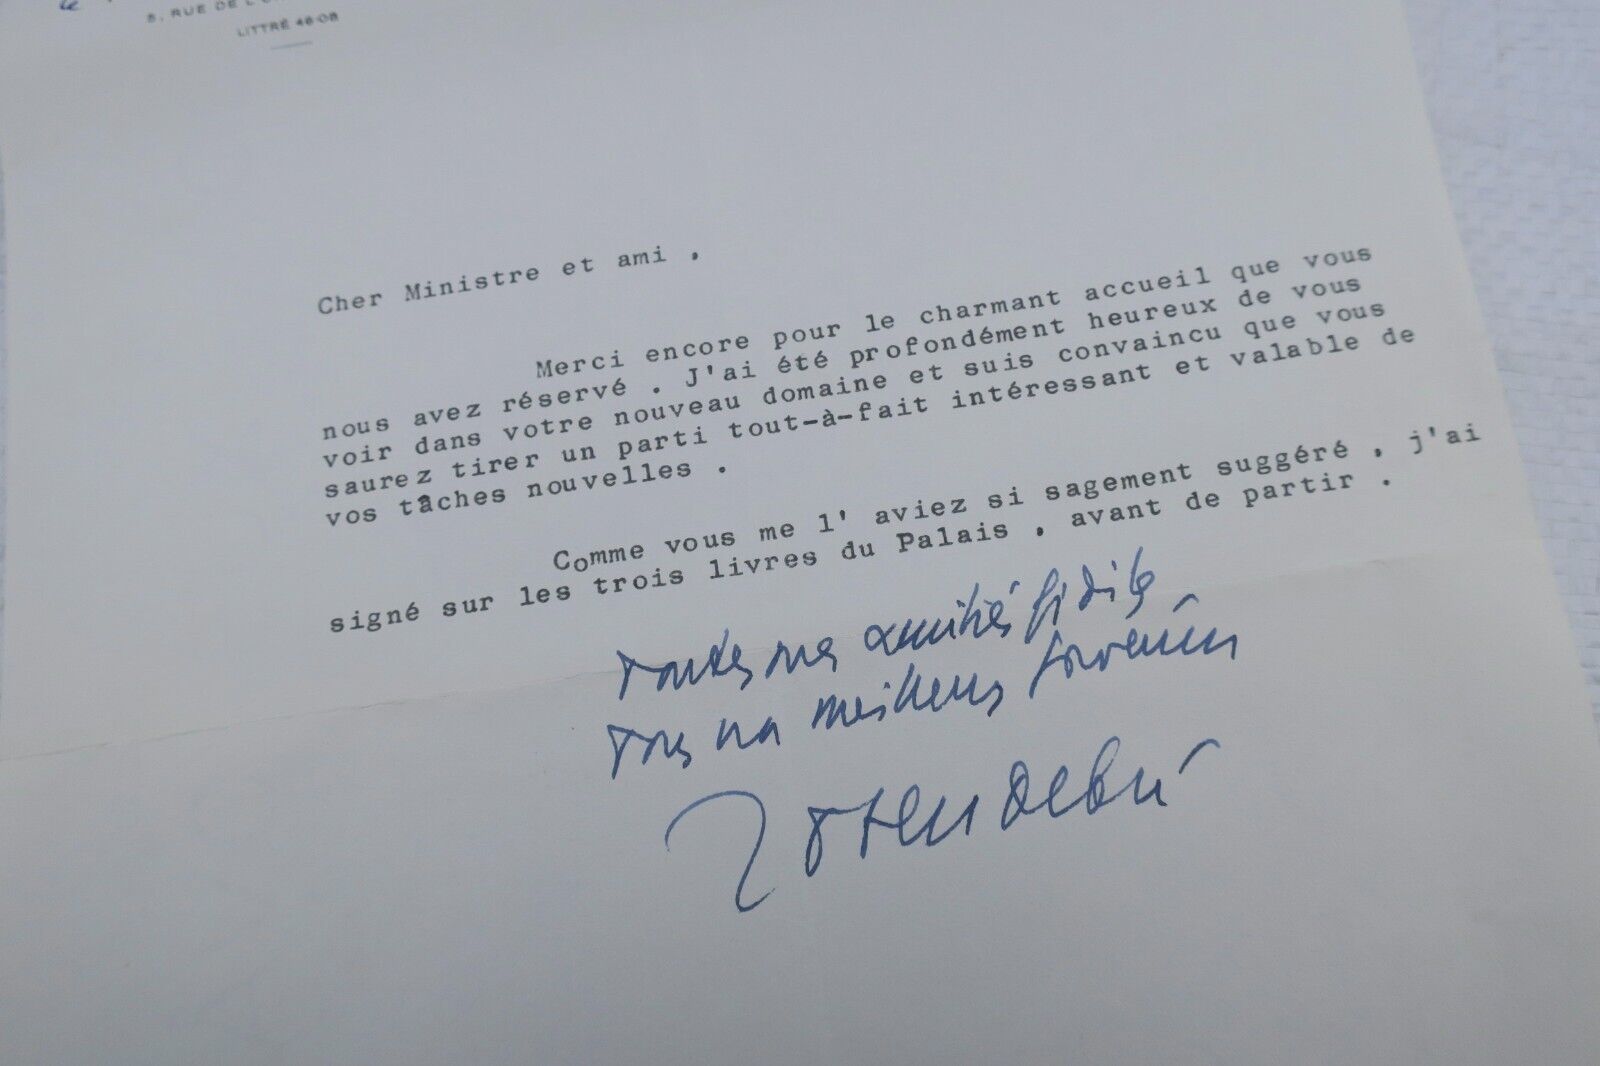 le
5, RUE DE L'
LITTRÉ 48-08
Cher Ministre et ami ,
Merci encore pour le charmant accueil que vous
nous avez réservé . J'ai été profondément heureux de vous
voir dans votre nouveau domaine et suis convaincu que vous
saurez tirer un parti tout-à-fait intéressant et valable de
vos tâches nouvelles .
Comme vous me l' aviez si sagement suggéré , j'ai
signé sur les trois livres du Palais , avant de partir .
Toutes mes amitiés fidèles
Tous mes meilleurs souvenirs